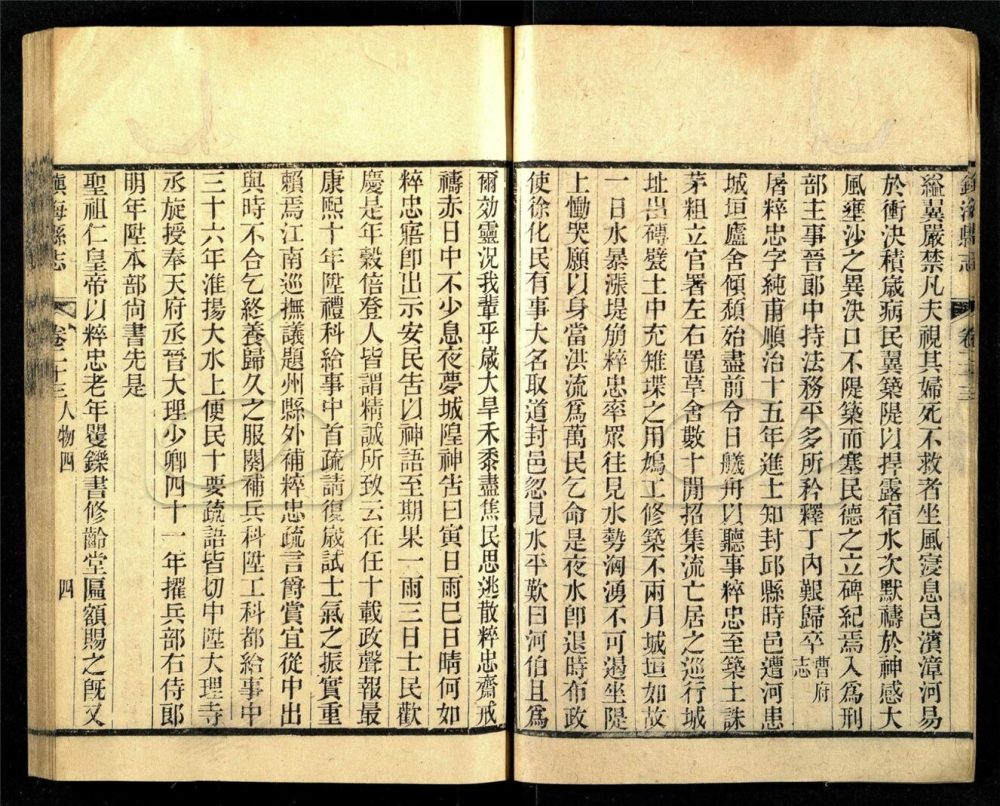 鎮海縣志 卷二十三
縊翼嚴禁凡夫視其婦死不救者坐風寖息邑濱漳河易
於衝決積歲病民翼築隄以捍露宿水次默禱於神感大
風壅沙之異決口不隄築而塞民德之立碑紀焉入為刑
部主事晉郎中持法務平多所矜釋丁內艱歸卒曹府志
屠粹忠字純甫順治十五年進士知封邱縣時邑遭河患
城垣廬舍傾頹殆盡前令日艤舟以聽事粹忠至築土誅
茅粗立官署左右置草舍數十間招集流亡居之巡行城
址出磚甓土中充雉堞之用鳩工修築不兩月城垣如故
一日水暴漲堤崩粹忠率眾往見水勢洶湧不可遏坐隄
上慟哭願以身當洪流為萬民乞命是夜水卽退時布政
使徐化民有事大名取道封邑忽見水平歎曰河伯且為
爾効靈況我輩乎歲大旱禾黍盡焦民思逃散粹忠齋戒
禱赤日中不少息夜夢城隍神告曰寅日雨巳日晴何如
粹忠寤卽出示安民告以神語至期果一雨三日士民歡
慶是年穀倍登人皆謂精誠所致云在任十載政聲報最
康熙十年陞禮科給事中首疏請復歲試士氣之振實重
賴焉江南巡撫議題州縣外補粹忠疏言爵賞宜從中出
與時不合乞終養歸久之服闋補兵科陞工科都給事中
三十六年淮揚大水上便民十要疏語皆切中陞大理寺
丞旋授奉天府丞晉大理少卿四十一年擢兵部右侍郎
明年陞本部尚書先是
聖祖仁皇帝以粹忠老年矍鑠書修齡堂匾額賜之旣又
鎮海縣志 卷二十三 人物四 四